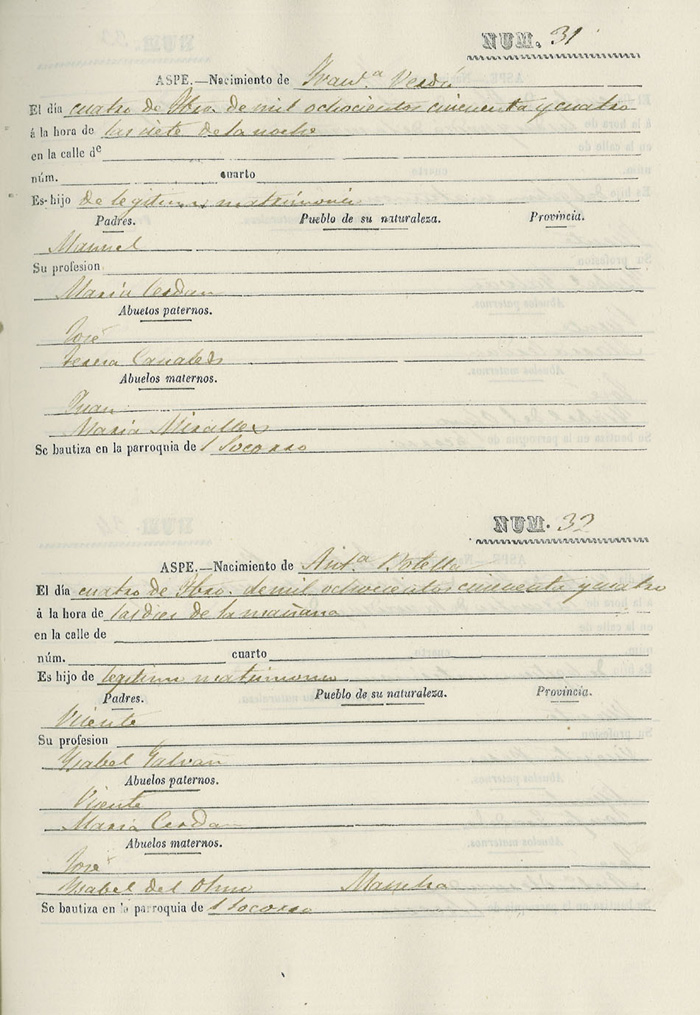 NUM. 31
ASPE.—Nacimiento de Franca Verdú
El dia cuatro de 7bre. de mil ochocientos cincuenta y cuatro
á la hora de las siete de la noche
en la calle de
núm. cuarto
Es hijo de legitimo matrimonio
Padres. Pueblo de su naturaleza. Provincia.
Manuel
Su profesion
Maria Cerdan
Abuelos paternos.
José
Teresa Canales
Abuelos maternos.
Juan
Maria Miralles
Se bautiza en la parroquia de l Socorro
NUM. 32
ASPE.—Nacimiento de Anta Botella
El día cuatro de 7bre. de mil ochocientos cincuenta y cuatro
á la hora de las dies de la mañana
en la calle de
núm. cuarto
Es hijo de legitimo matrimonio
Padres. Pueblo de su naturaleza. Provincia.
Vicente
Su profesion
Ysabel Galvañ
Abuelos paternos.
Vicente
Maria Cerdan
Abuelos maternos.
José
Ysabel del Olmo
Se bautiza en la parroquia de l Socorro